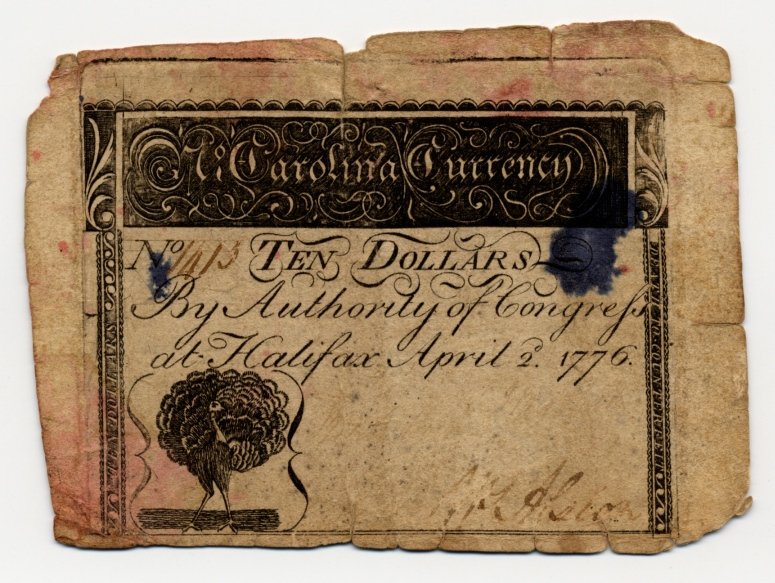 No. Carolina Currency
No. 1413 Ten Dollars
By Authority of Congress
at Halifax April 2d. 1776.